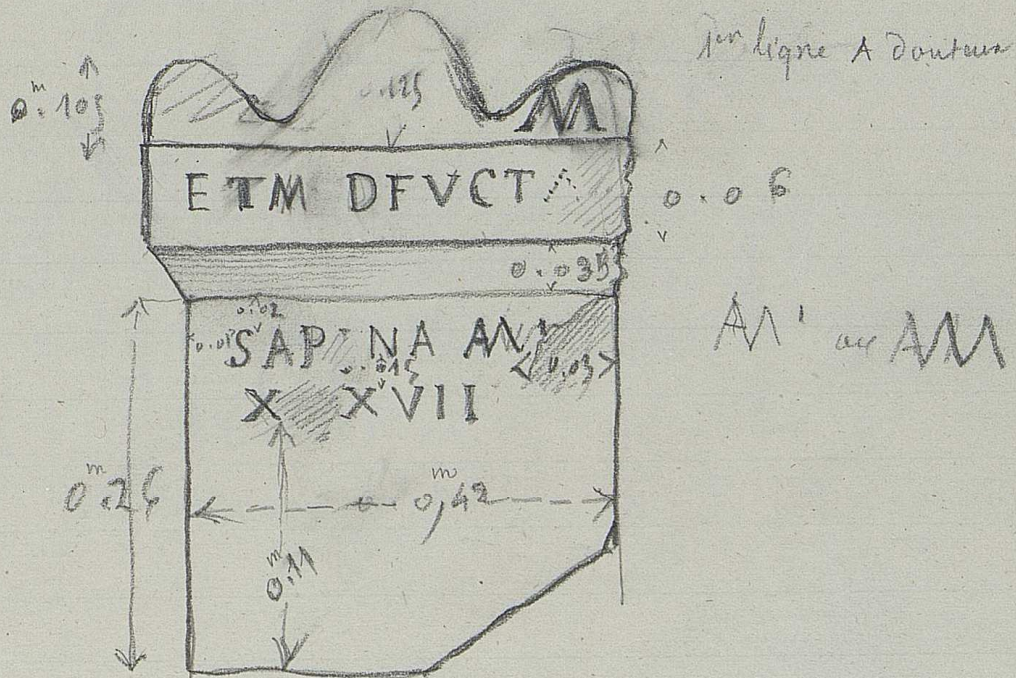 1ère ligne A douteux
0.m105
0.125
M
ETM DFVCTA
0.06
0.035
0.02
SAP NA AN
0.015
0.03
AM' ou AMM
X XVII
0m.26
0m,42
0.m11